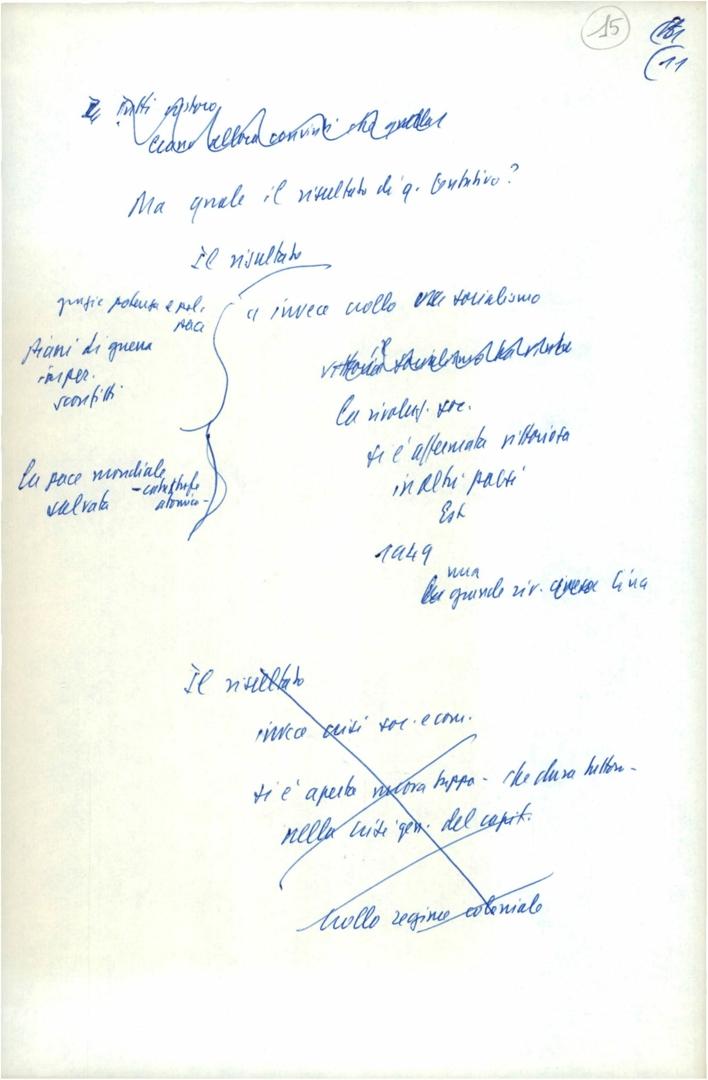 15
(11
E tutti costoro
erano allora convinti che
Ma quale il risultato di q. tentativo?
Il risultato
grazie potenza e pol.
pace
è invece crollo socialismo
Piani di guerra
imper.
sconfitti
La rivoluz. soc.
si è affermata vittoriosa
in altri paesi
Est
La pace mondiale
salvata - catastrofe
atomica -
1949
una
grande riv. Cina
Il risultato
invece crisi soc. econ.
si è aperta nuova tappa - che dura tuttora -
nella crisi gen. del capit.
Crollo regime coloniale